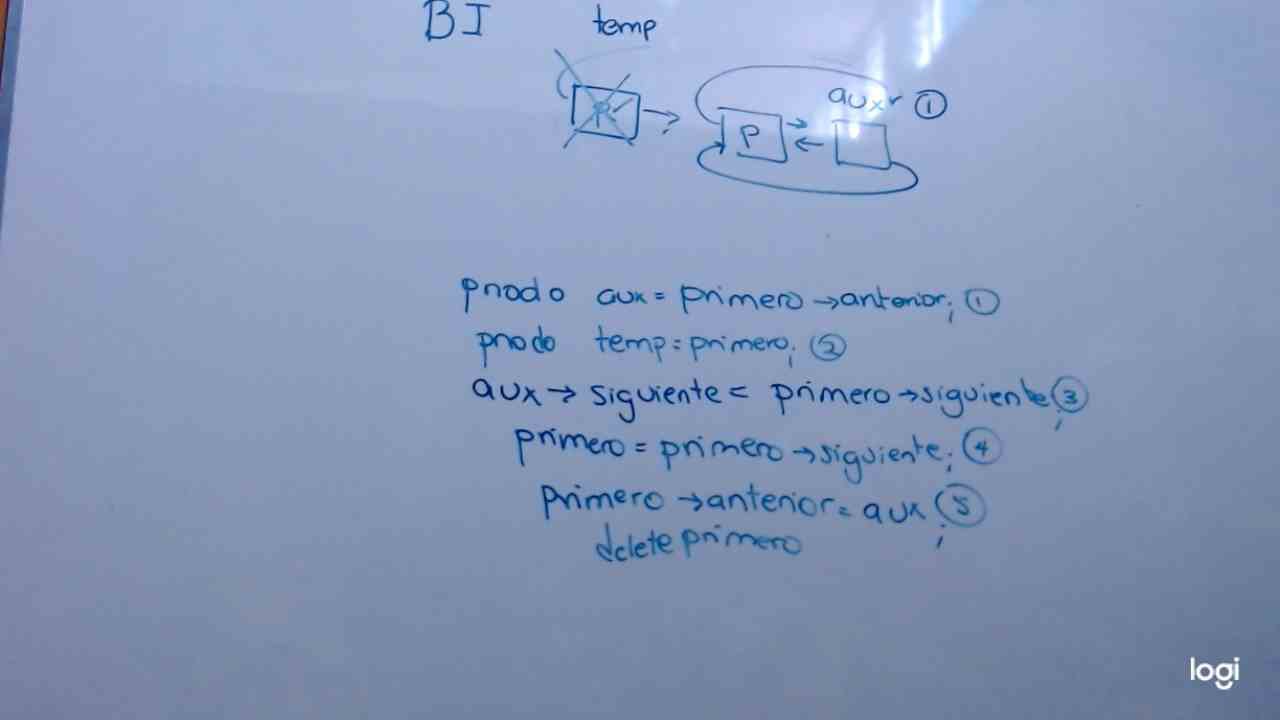 BI temp
R
P aux ①
pnodo aux = primero → anterior; ①
pnodo temp = primero; ②
aux → siguiente = primero → siguiente; ③
primero = primero → siguiente; ④
primero → anterior = aux; ⑤
delete primero
logi